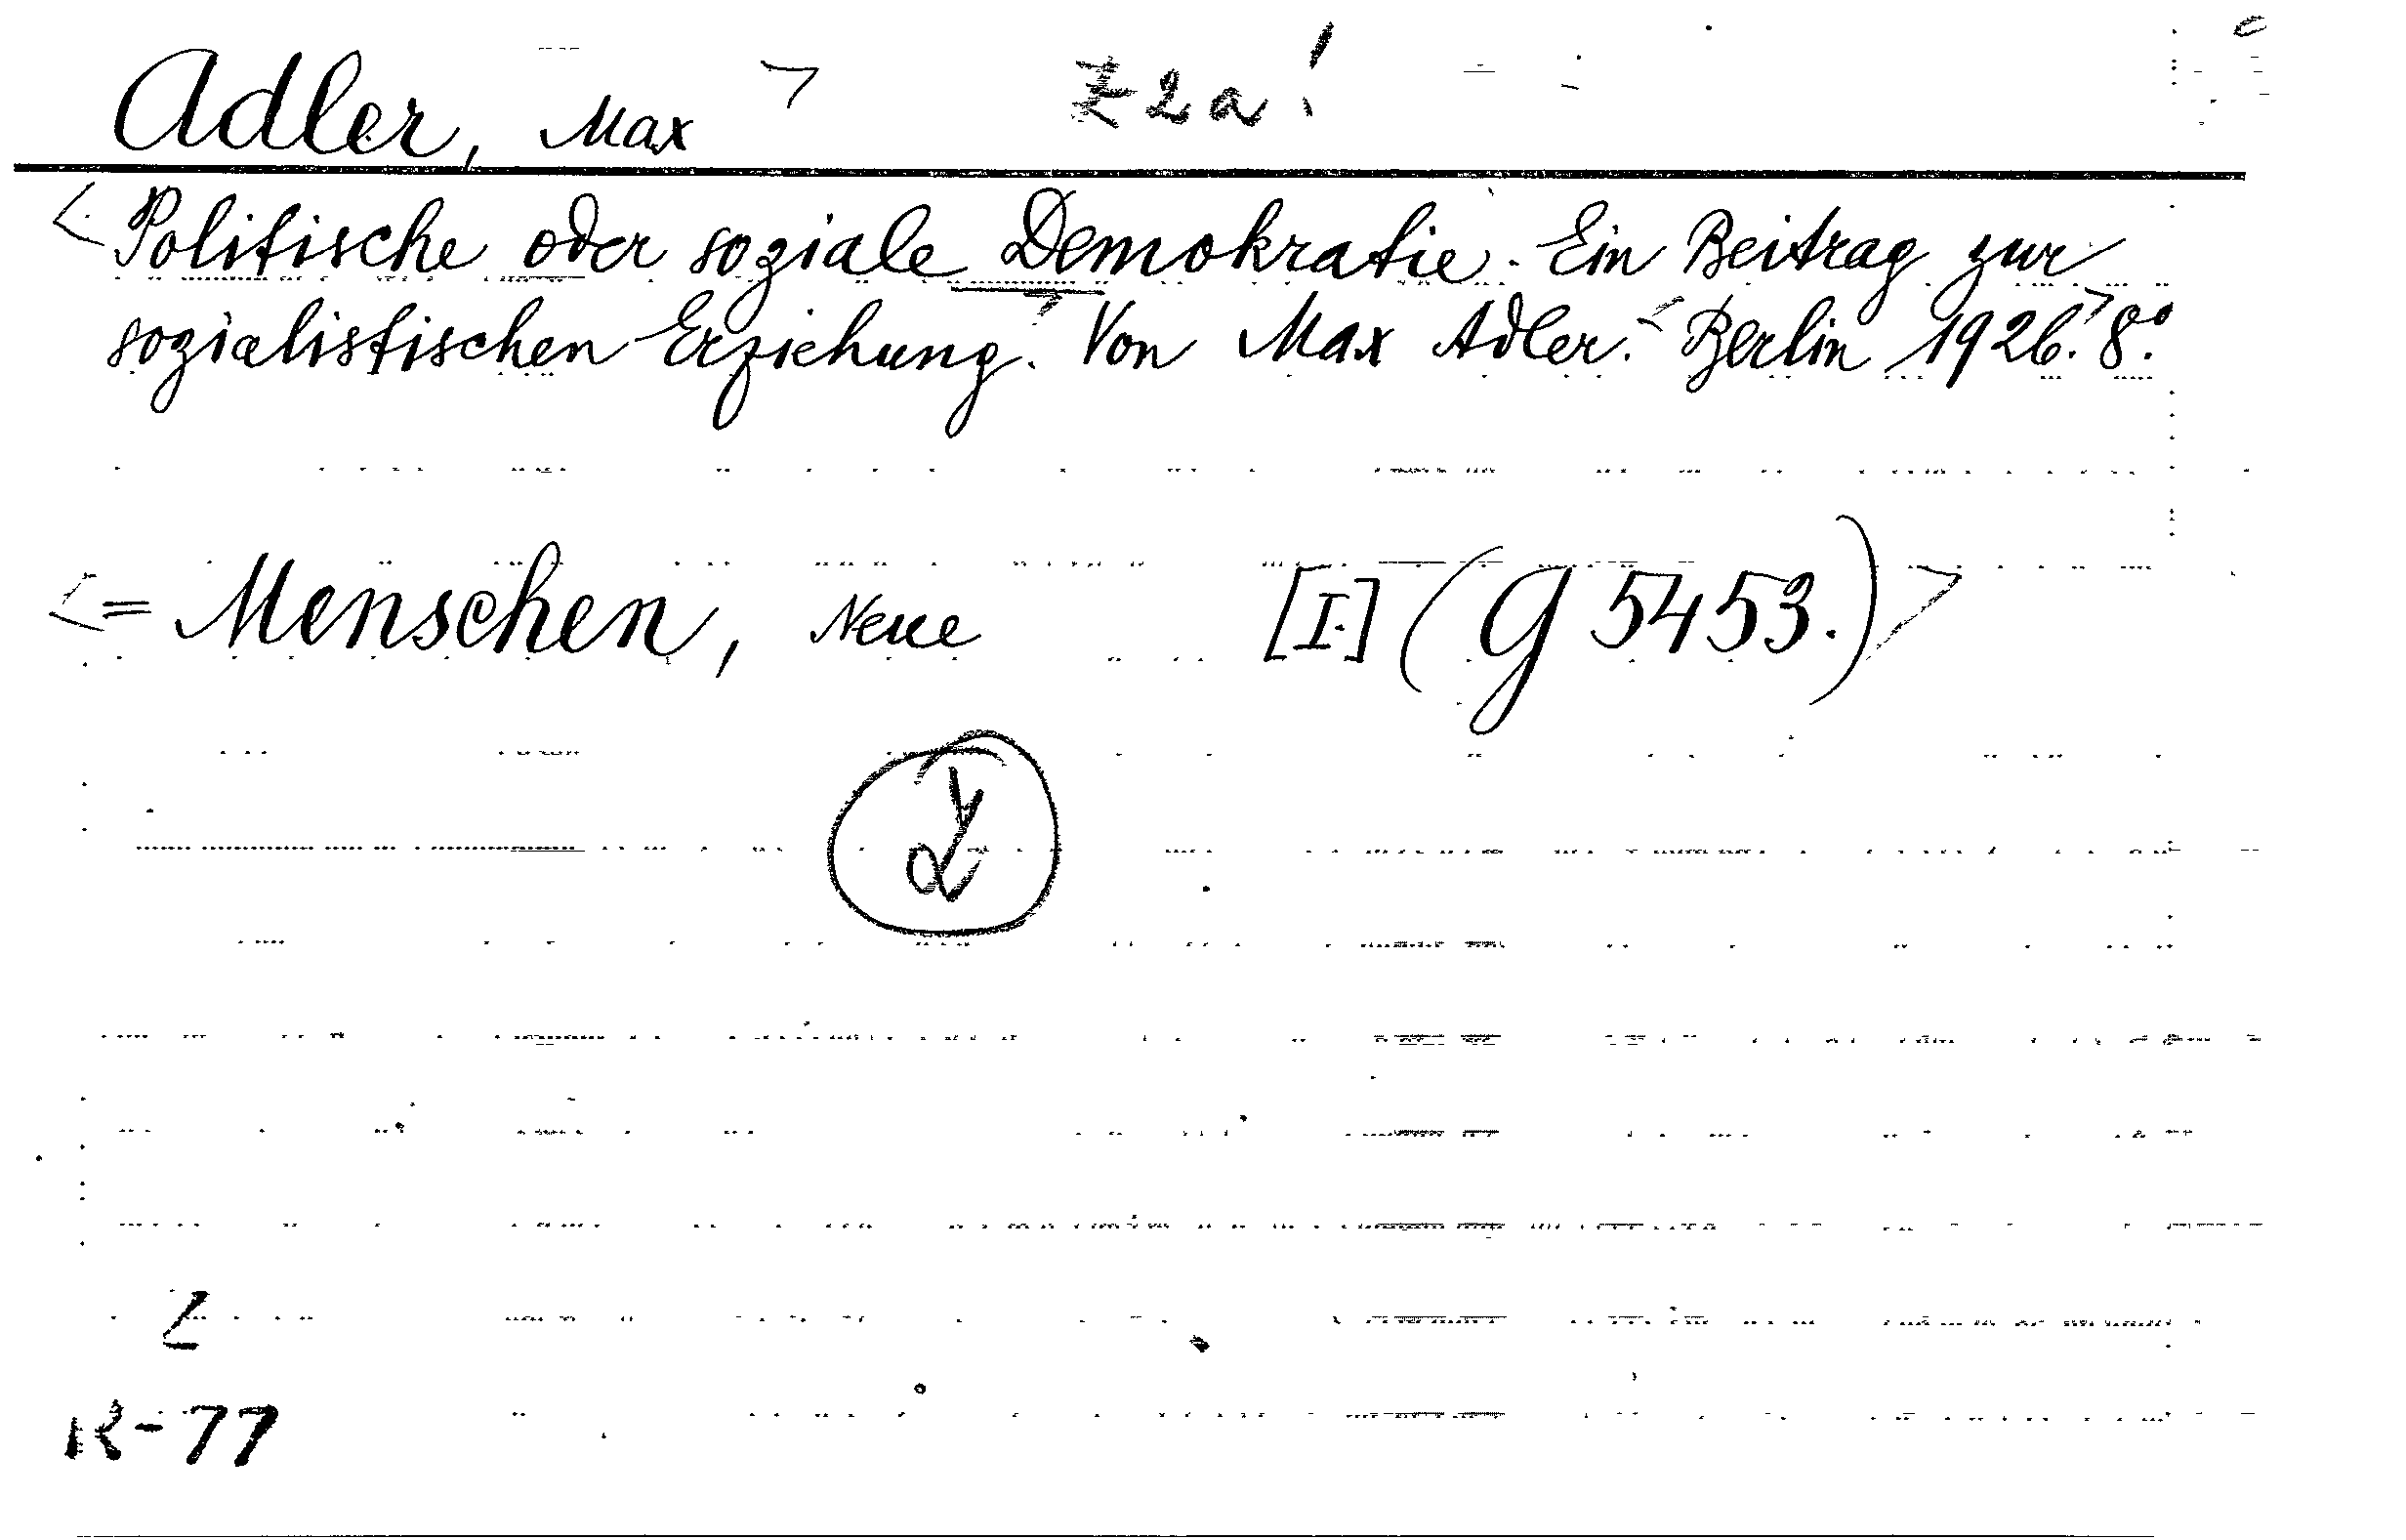 Adler, Max > Z2a!
< Politische oder soziale Demokratie. Ein Beitrag zur
sozialistischen Erziehung. Von Max Adler. < Berlin 1926. > 8°.
< = Menschen, Neue [I.] (G 5453.) >
Z
K-77